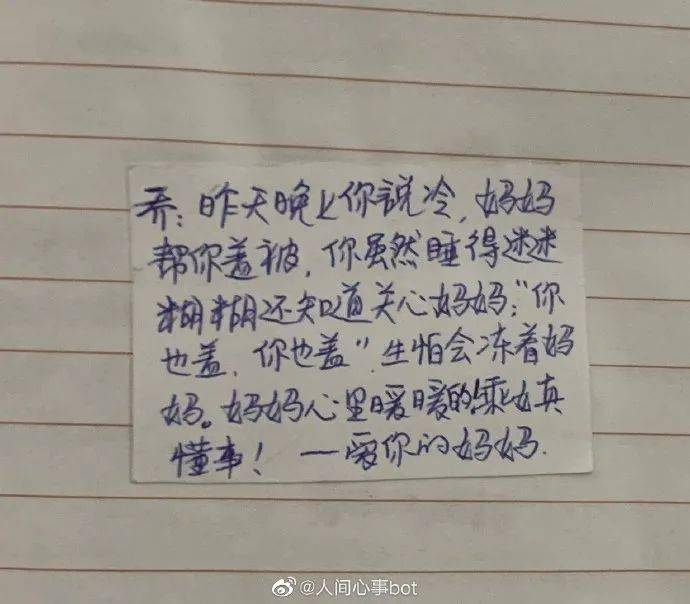 乔：昨天晚上你说冷，妈妈
帮你盖被，你虽然睡得迷迷
糊糊还知道关心妈妈：“你
也盖，你也盖”，生怕会冻着妈
妈。妈妈心里暖暖的！乘女真
懂事！ 一爱你的妈妈.
@人间心事bot